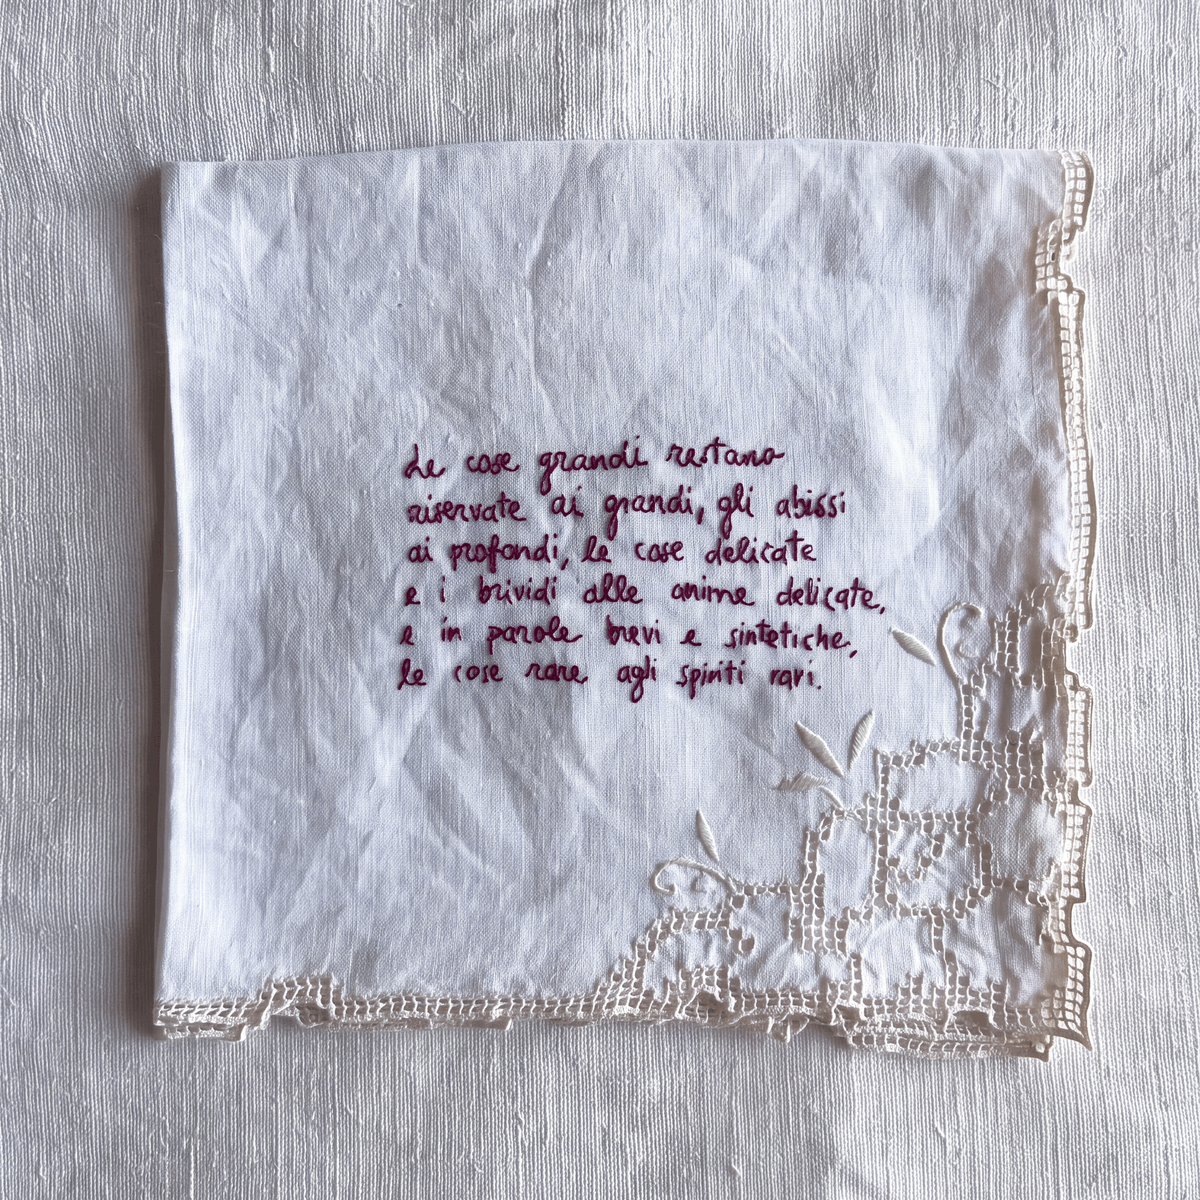 Le cose grandi restano
riservate ai grandi, gli abissi
ai profondi, le cose delicate
e i brividi alle anime delicate,
e in parole brevi e sintetiche,
le cose rare agli spiriti rari.